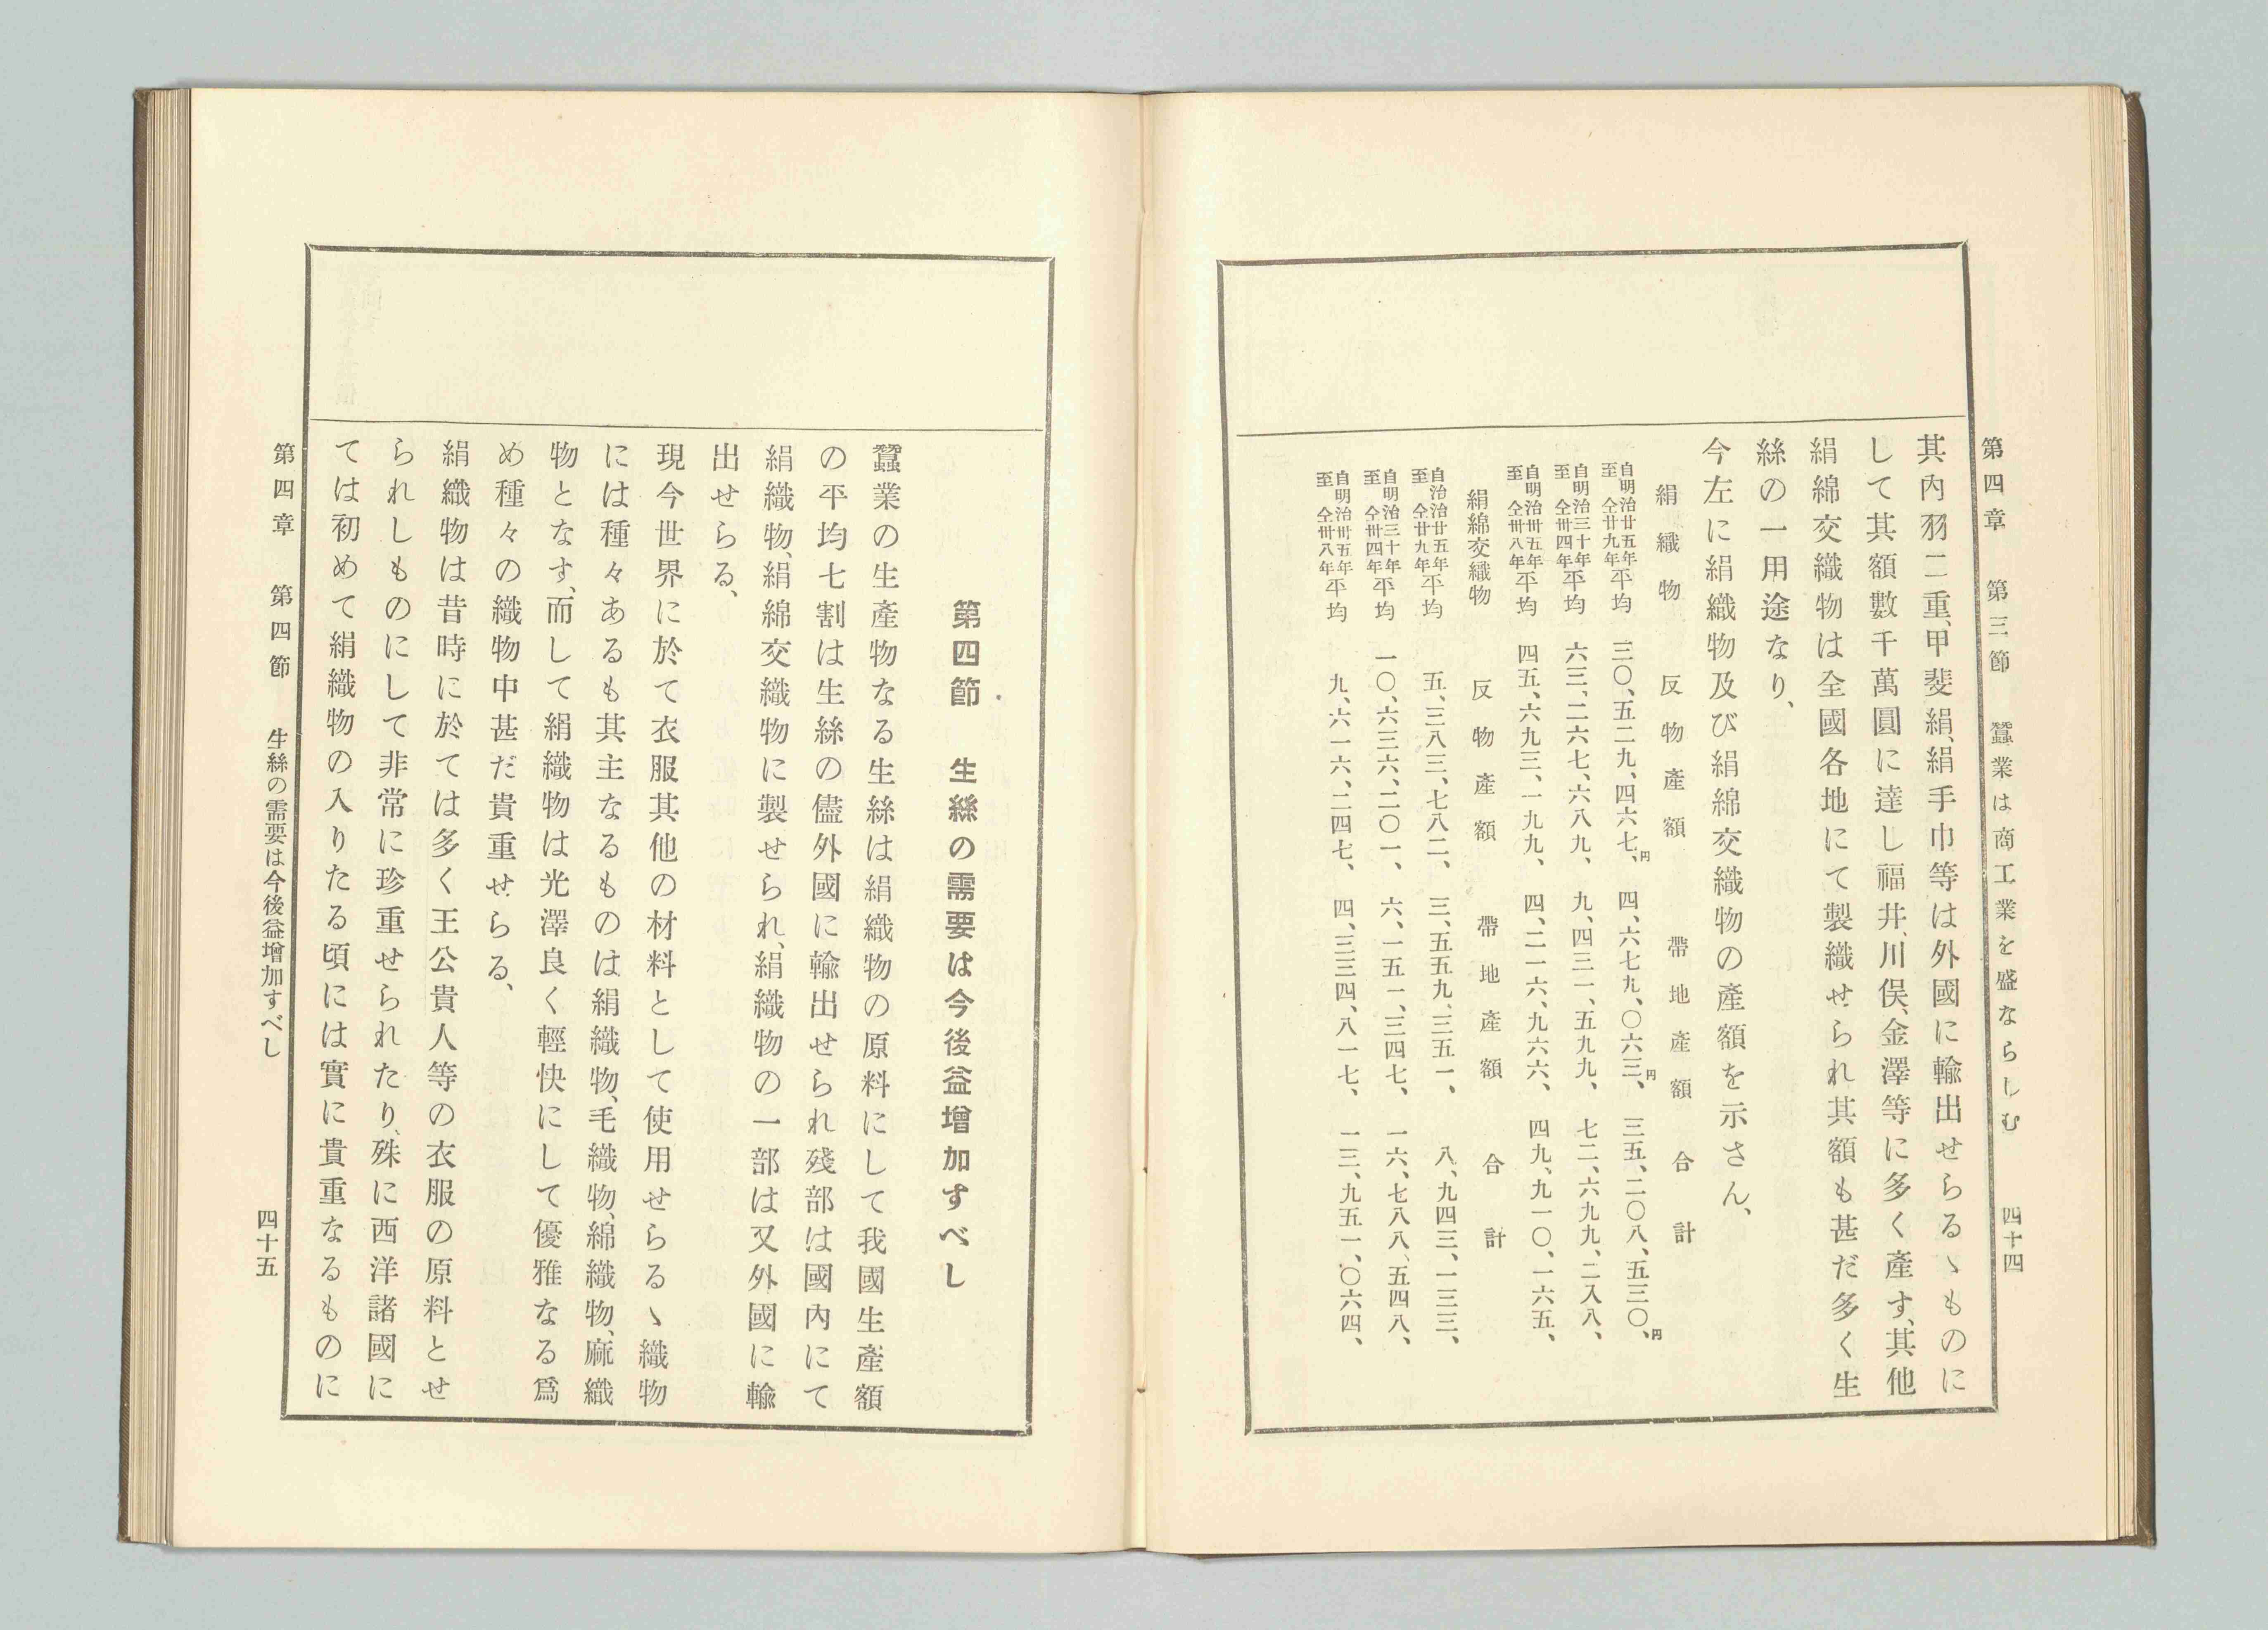 第四章　第三節　蠶業は商工業を盛ならしむ　四十四
其內羽二重、甲斐絹、絹手巾等は外國に輸出せらるゝものに
して其額數千萬圓に達し福井、川俣、金澤等に多く產す、其他
絹綿交織物は全國各地にて製織せられ其額も甚だ多く生
絲の一用途なり、
今左に絹織物及び絹綿交織物の產額を示さん、
絹織物　反物產額　帶地產額　合計
自明治廿五年至仝廿九年平均　三〇、五二九、四六七、円　四、六七九、〇六三、円　三五、二〇八、五三〇、円
自明治三十年至仝卅四年平均　六三、二六七、六八九、　九、四三一、五九九、　七二、六九九、二八八、
自明治卅五年至仝卅八年平均　四五、六九三、一九九、　四、二一六、九六六、　四九、九一〇、一六五、
絹綿交織物　反物產額　帶地產額　合計
自治治廿五年至仝廿九年平均　五、三八三、七八二、　三、五五九、三五一、　八、九四三、一三三、
自明治三十年至仝卅四年平均　一〇、六三六、二〇一、　六、一五一、三四七、　一六、七八八、五四八、
自明治卅五年至仝卅八年平均　九、六一六、二四七、　四、三三四、八一七、　一三、九五一、〇六四、
第四節　生絲の需要は今後益增加すべし
蠶業の生產物なる生絲は絹織物の原料にして我國生產額
の平均七割は生絲の儘外國に輸出せられ殘部は國內にて
絹織物、絹綿交織物に製せられ、絹織物の一部は又外國に輸
出せらる、
現今世界に於て衣服其他の材料として使用せらるゝ織物
には種々あるも其主なるものは絹織物、毛織物、綿織物、麻織
物となす、而して絹織物は光澤良く輕快にして優雅なる爲
め種々の織物中甚だ貴重せらる、
絹織物は昔時に於ては多く王公貴人等の衣服の原料とせ
られしものにして非常に珍重せられたり、殊に西洋諸國に
ては初めて絹織物の入りたる頃には實に貴重なるものに
第四章　第四節　生絲の需要は今後益增加すべし　四十五